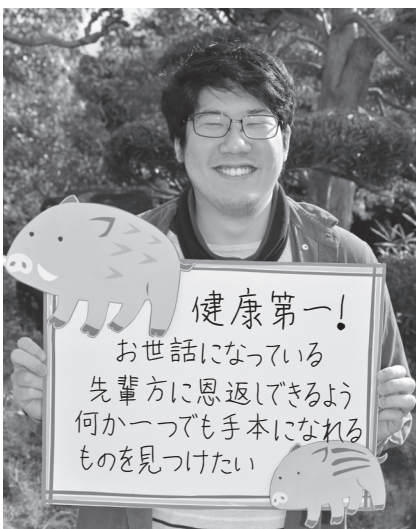 健康第一!
お世話になっている
先輩方に恩返しできるよう
何か一つでも手本になれる
ものを見つけたい